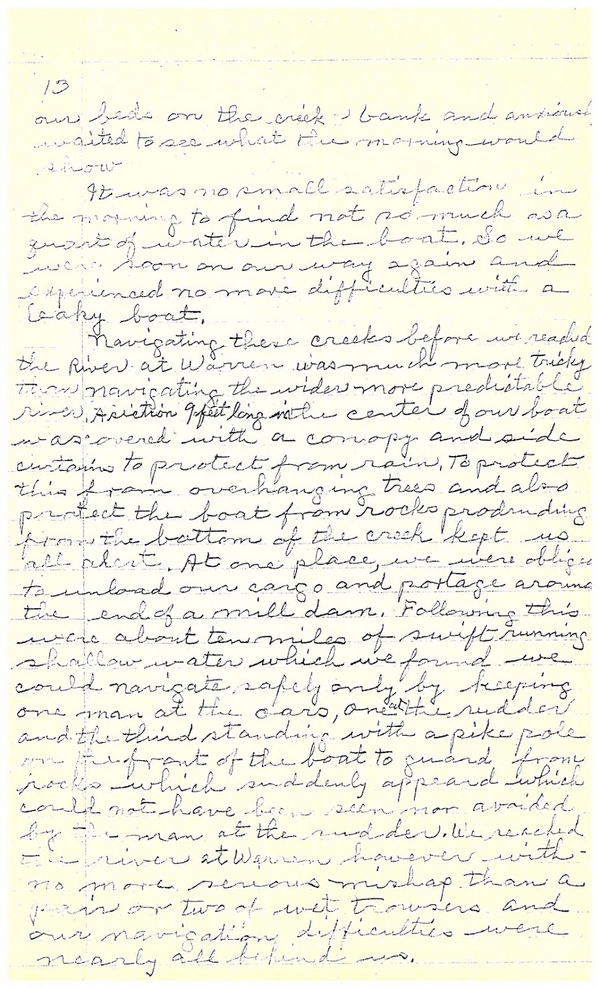 13
our beds on the creek bank and anxiously
waited to see what the morning would
show
It was no small satisfaction in
the morning to find not so much as a
quart of water in the boat. So we
were soon on our way again and
experienced no more difficulties with a
leaky boat.
Navigating these creeks before we reached
the River at Warren was much more tricky
than navigating the wider more predictable
river. A section 9 feet long in the center of our boat
was covered with a conopy and side
curtains to protect from rain. To protect
this from overhanging trees and also
protect the boat from rocks prodruding
from the bottom of the creek kept us
all alert. At one place, we were obliged
to unload our cargo and portage around
the end of a mill dam. Following this
were about ten miles of swift running
shallow water which we found we
could navigate safely only by keeping
one man at the oars, one at the rudder
and the third standing with a pike pole
on the front of the boat to guard from
rocks which suddenly appeard which
could not have been seen nor avoided
by the man at the rudder. We reached
the river at Warren however with
no more serious mishap than a
pair or two of wet trousers and
our navigation difficulties were
nearly all behind us.